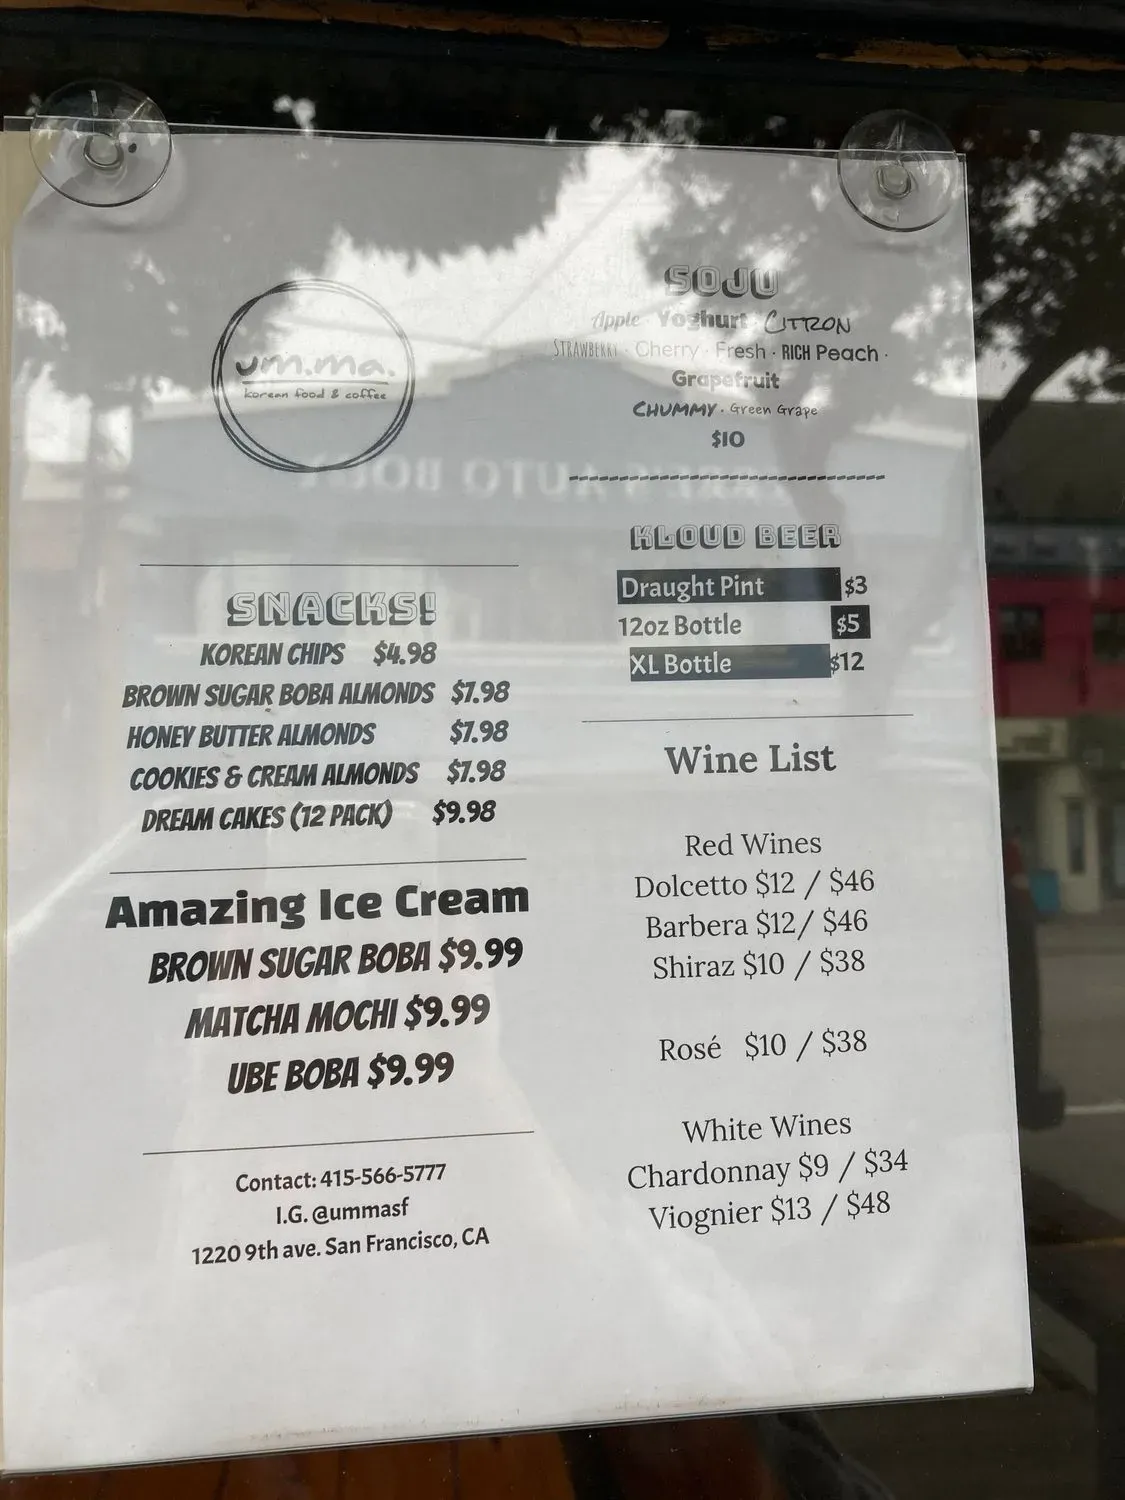 um.ma.
korean food & coffee
SNACKS!
KOREAN CHIPS $4.98
BROWN SUGAR BOBA ALMONDS $7.98
HONEY BUTTER ALMONDS $7.98
COOKIES & CREAM ALMONDS $7.98
DREAM CAKES (12 PACK) $9.98
Amazing Ice Cream
BROWN SUGAR BOBA $9.99
MATCHA MOCHI $9.99
UBE BOBA $9.99
Contact: 415-566-5777
I.G. @ummasf
1220 9th ave. San Francisco, CA
SOJU
Apple · Yoghurt · CITRON
STRAWBERRY · Cherry · Fresh · RICH Peach ·
Grapefruit
CHUMMY · Green Grape
$10
KLOUD BEER
Draught Pint $3
12oz Bottle $5
XL Bottle $12
Wine List
Red Wines
Dolcetto $12 / $46
Barbera $12/ $46
Shiraz $10 / $38
Rosé $10 / $38
White Wines
Chardonnay $9 / $34
Viognier $13 / $48